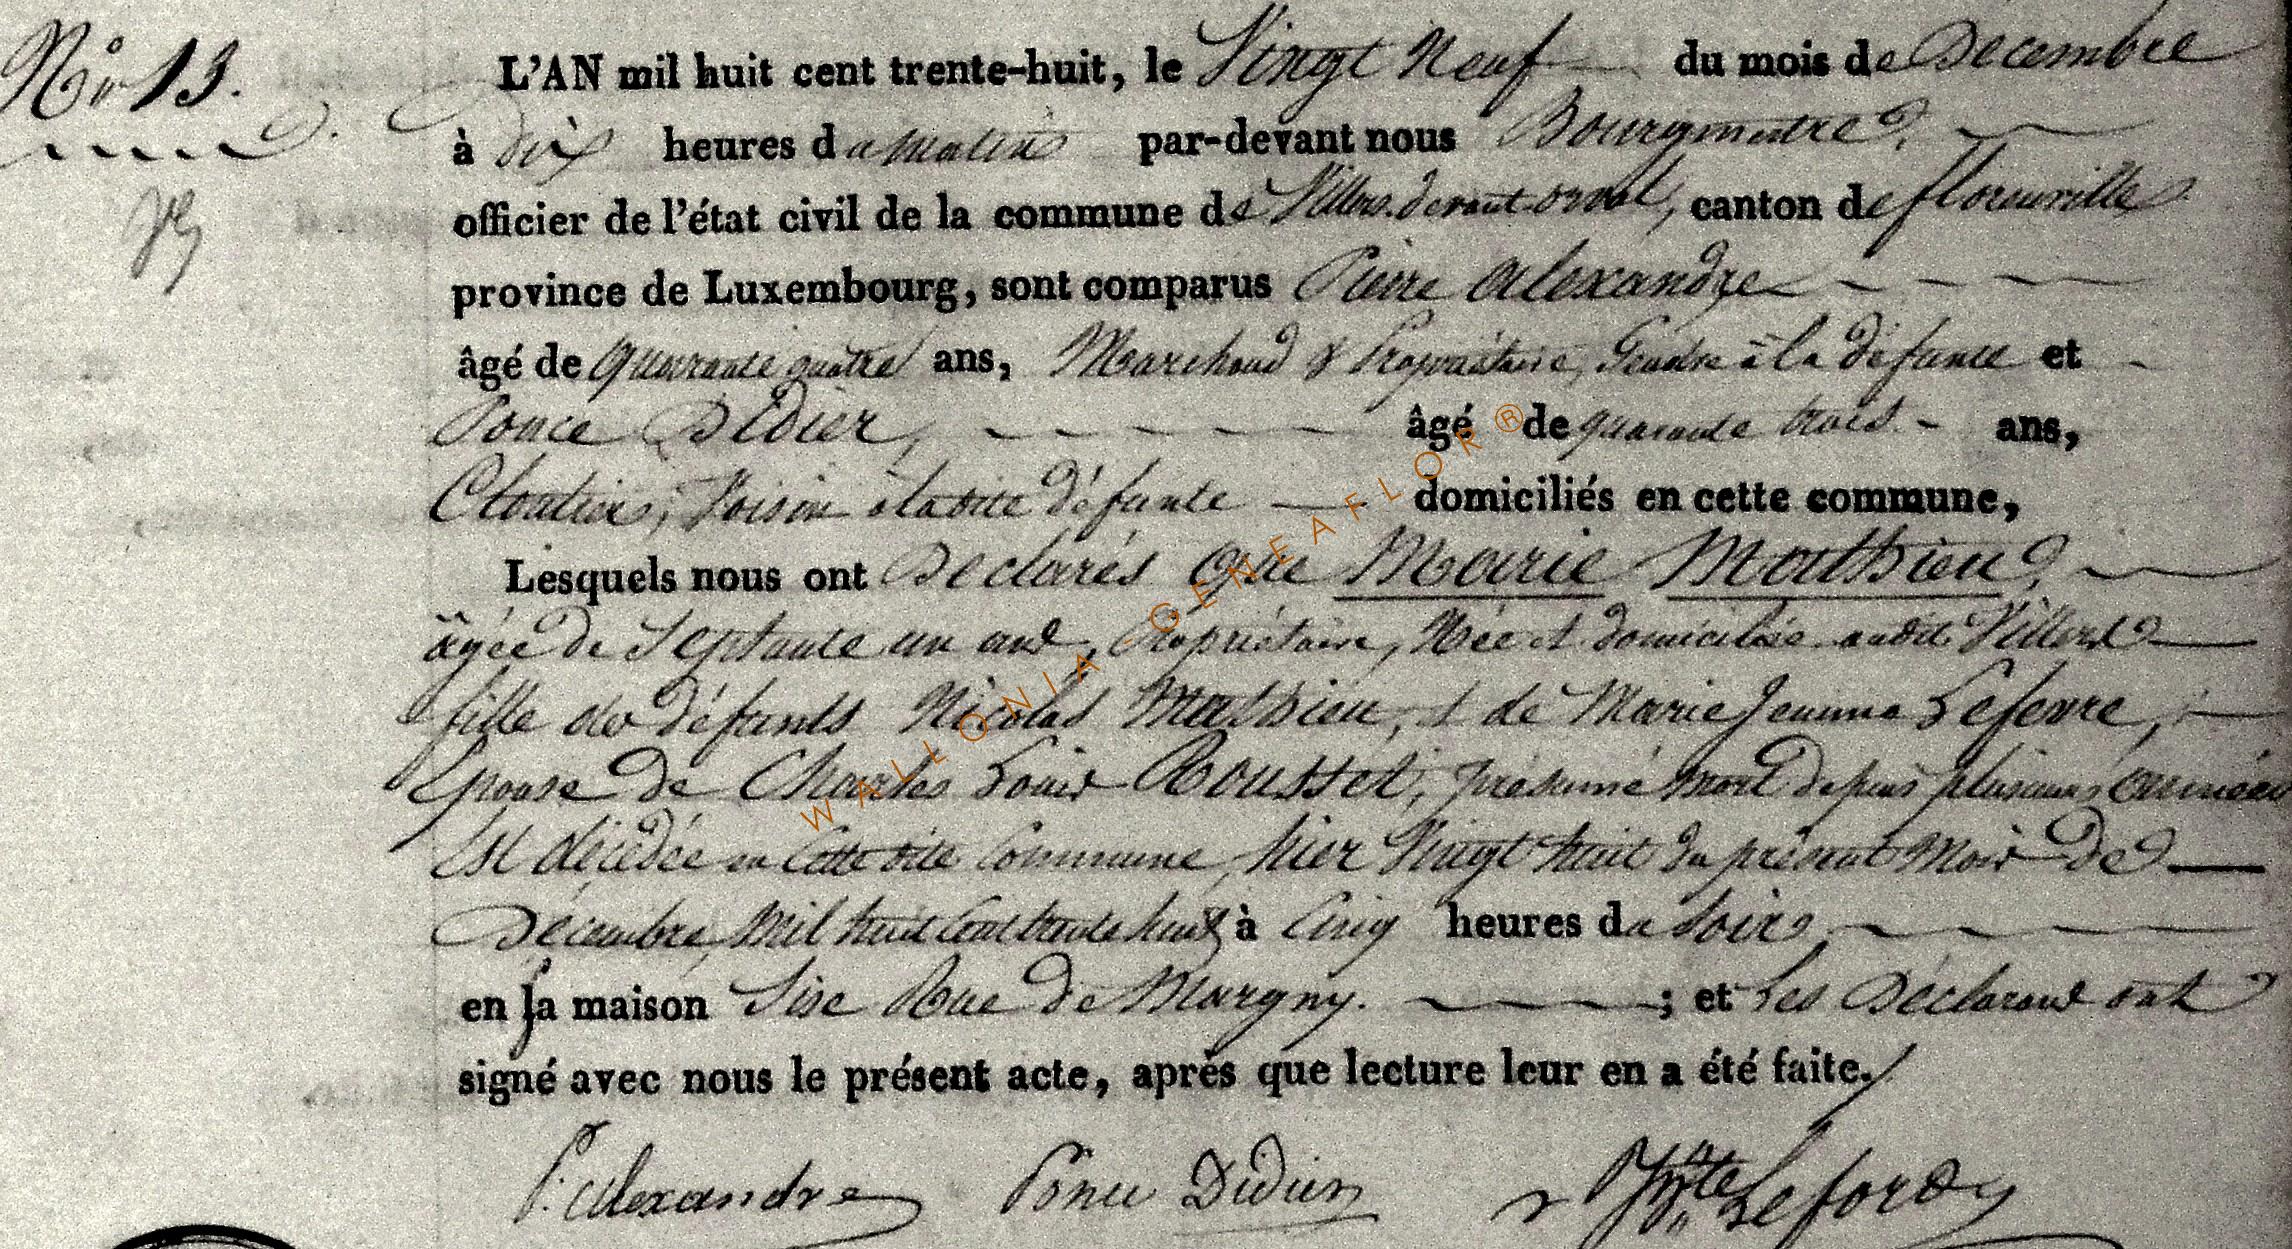 No 13.
L'AN mil huit cent trente-huit, le Vingt Neuf du mois de Décembre
à dix heures du matin par-devant nous Bourgmestre,
officier de l'état civil de la commune de Villers devant orval, canton de florenville
province de Luxembourg, sont comparus Pierre Alexandre
âgé de quarante quatre ans, Marchand & Propriétaire, Gendre à la défunte et
Ponce Didier, âgé de quarante trois ans,
Cloutier, Voisin à ladite défunte domiciliés en cette commune,
Lesquels nous ont Déclarés Que Marie Mathieu,
âgée de Septante un ans, Propriétaire, Née et domiciliée audit Villers
fille des défunts Nicolas Mathieu, et de Marie Jeanne Lefevre,
Epouse de Charles Louis Rousset, présumé mort depuis plusieurs années
Est décédée en cette dite Commune, hier Vingt huit du présent Mois de
Décembre, Mil huit Cent trente huit, à Cinq heures du Soir,
en la maison Sise Rue de Margny. ; et Les Déclarant ont
signé avec nous le présent acte, après que lecture leur en a été faite.
P. Alexandre Ponce Didier Leford
WALLONIA - GENEAFLOR ®